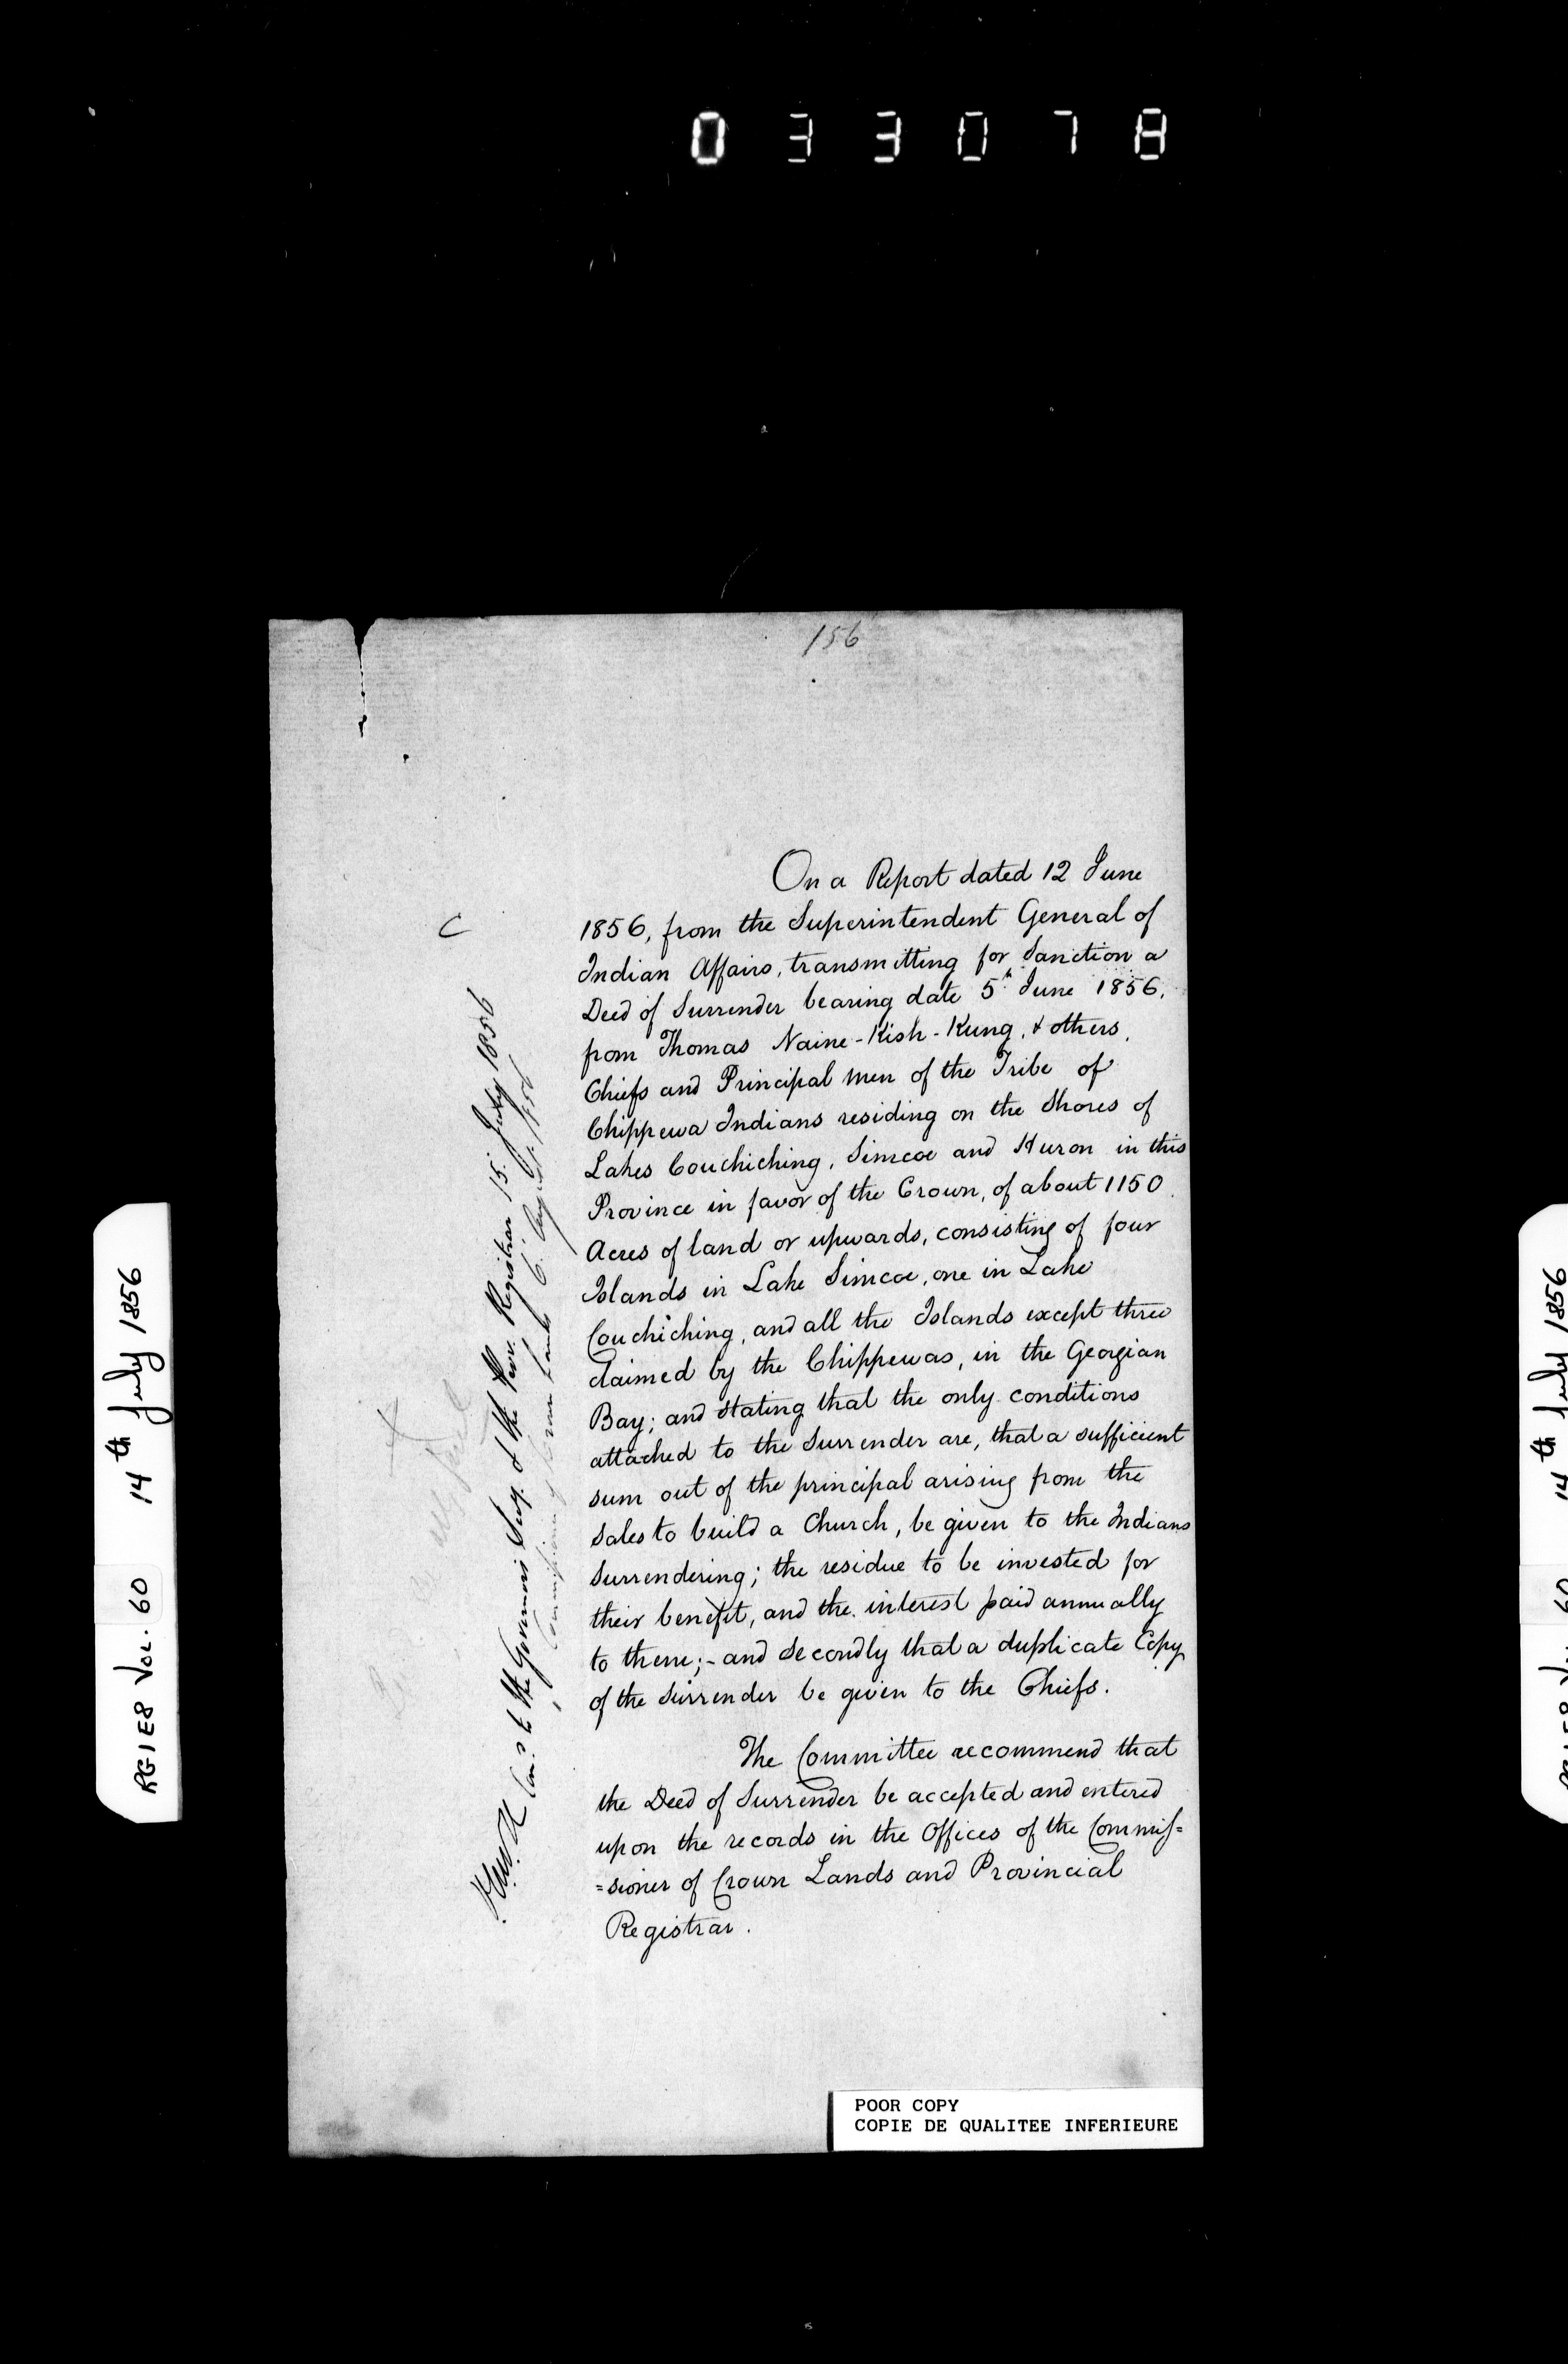 033078
156
On a Report dated 12 June
1856, from the Superintendent General of
Indian Affairs, transmitting for Sanction a
Deed of Surrender bearing date 5th June 1856,
from Thomas Naine-Kish-Kung, & others,
Chiefs and Principal men of the Tribe of
Chippewa Indians residing on the Shores of
Lakes Couchiching, Simcoe and Huron in this
Province in favor of the Crown, of about 1150
Acres of land or upwards, consisting of four
Islands in Lake Simcoe, one in Lake
Couchiching, and all the Islands except three
claimed by the Chippewas, in the Georgian
Bay; and stating that the only conditions
attached to the Surrender are, that a sufficient
sum out of the principal arising from the
Sales to build a Church, be given to the Indians
Surrendering; the residue to be invested for
their benefit, and the interest paid annually
to them;- and secondly that a duplicate Copy
of the Surrender be given to the Chiefs.
The Committee recommend that
the Deed of Surrender be accepted and entered
upon the records in the Offices of the Commis=
=sioner of Crown Lands and Provincial
Registrar.
C
to the Governors Secy. & the Prov. Registrar 15. July 1856
Commissioner of Crown Lands 6. August. 1856
RG1E8 VOL. 60 14th July 1856
14th July 1856
POOR COPY
COPIE DE QUALITEE INFERIEURE